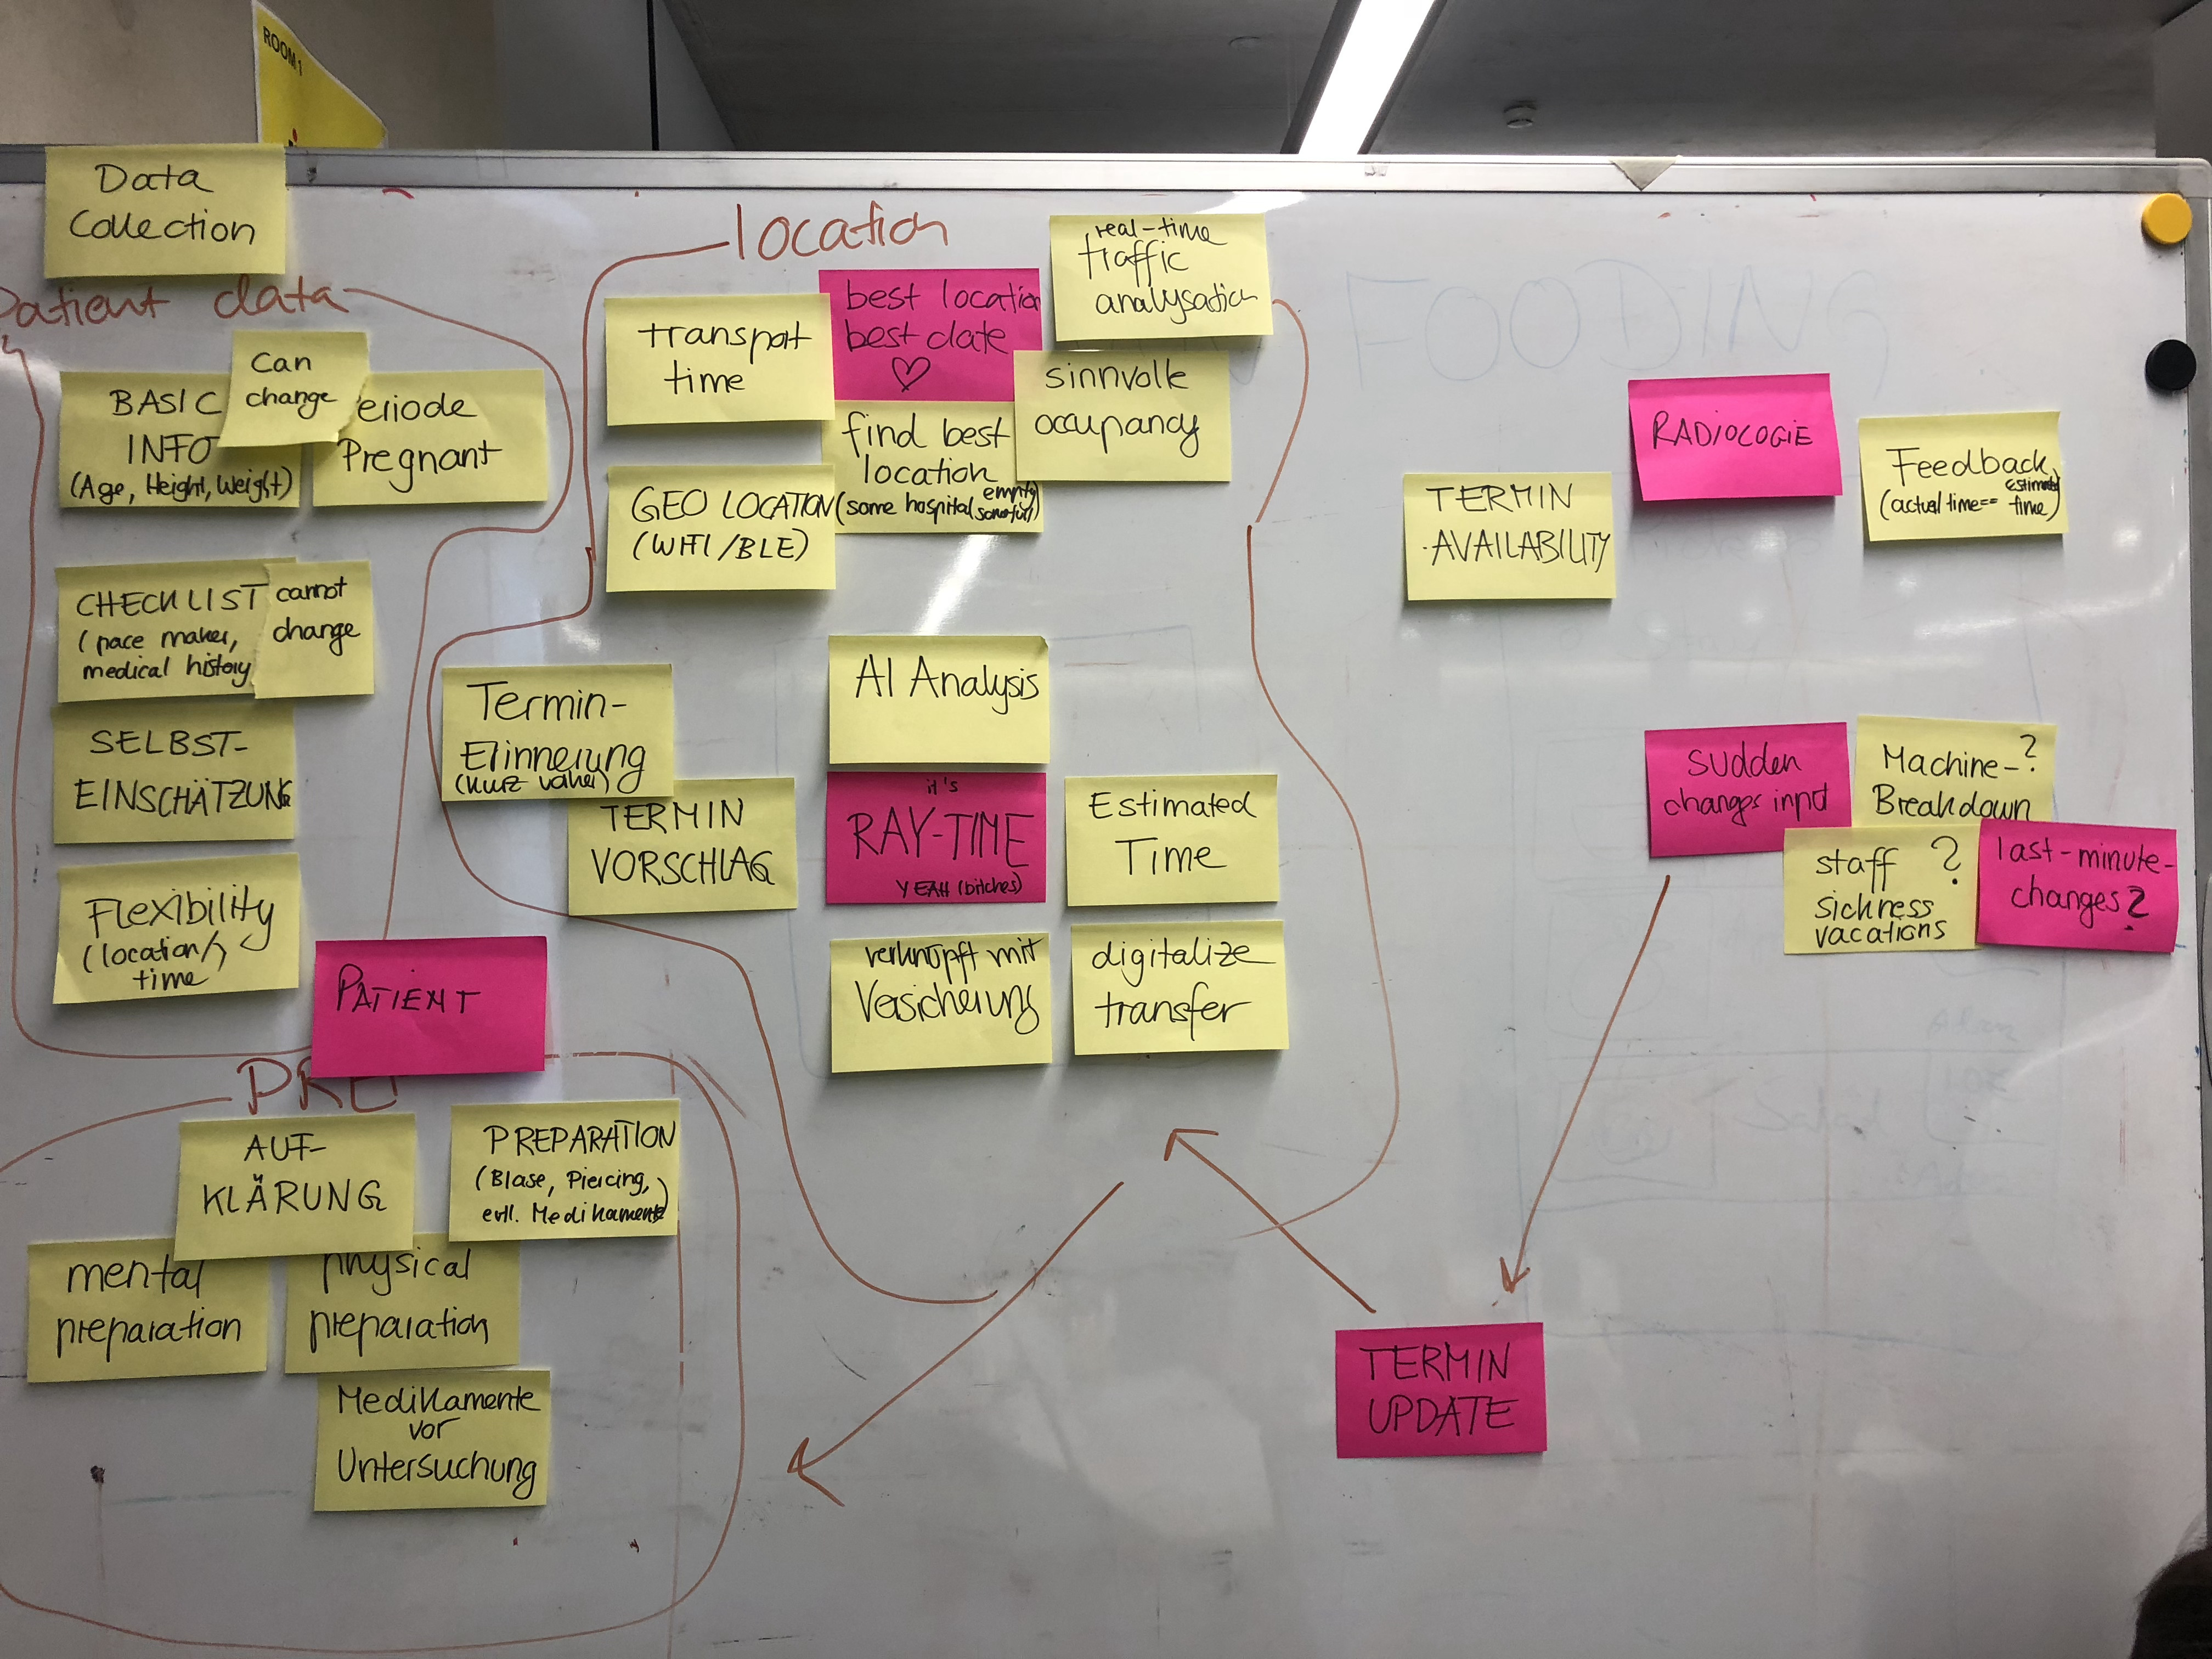 ROOM 1
Data
Collection
Patient data
BASIC
INFO
(Age, Height, Weight)
Can
change
eriode
Pregnant
CHECKLIST
(pace maker,
medical history
cannot
change
SELBST-
EINSCHÄTZUNG
Flexibility
(location/
time
PATIENT
PRE
AUF-
KLÄRUNG
PREPARATION
(Blase, Piercing,
evtl. Medikamente)
mental
preparation
physical
preparation
Medikamente
vor
Untersuchung
location
transport
time
best location
best date
real-time
traffic
analysation
sinnvolle
occupancy
find best
location
(some hospital empty
some full)
GEO LOCATION
(WIFI/BLE)
Termin-
Erinnerung
(kurz vorher)
TERMIN
VORSCHLAG
AI Analysis
it's
RAY-TIME
YEAH (bitches)
Estimated
Time
verknüpft mit
Versicherung
digitalize
transfer
RADIOLOGIE
TERMIN
AVAILABILITY
Feedback
(actual time == estimated
time)
sudden
changes input
Machine-?
Breakdown
staff ?
sickness
vacations
last-minute-
changes?
TERMIN
UPDATE